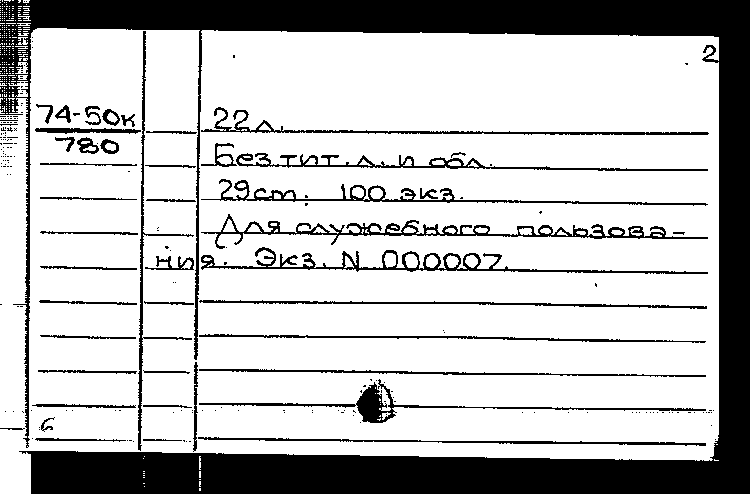 2
74-50к
780
22 л.
Без тит. л. и обл.
29ст. 100 экз.
Для служебного пользова-
ния. Экз. N 000007.
6